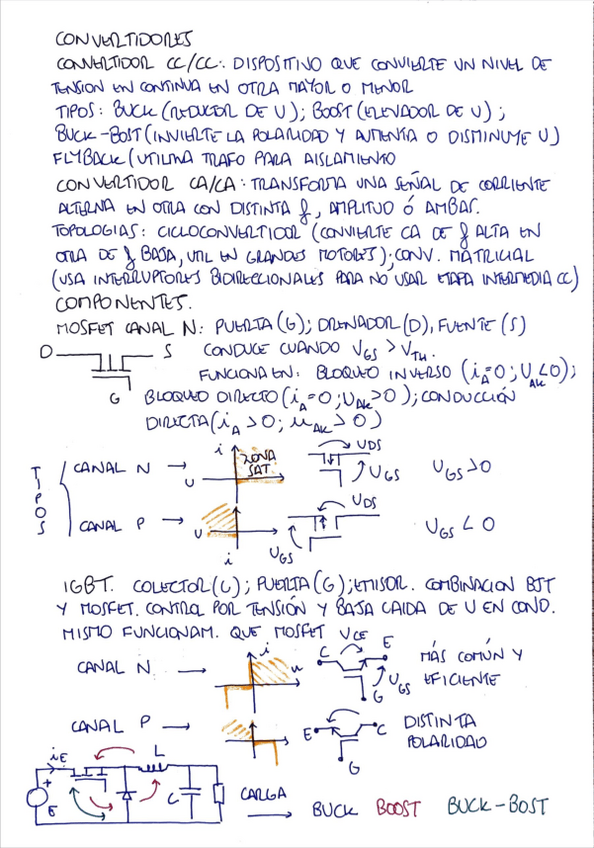 CONVERTIDORES
CONVERTIDOR CC/CC: DISPOSITIVO QUE CONVIERTE UN NIVEL DE
TENSION EN CONTINUA EN OTRA MAYOR O MENOR
TIPOS: BUCK (REDUCTOR DE U); BOOST (ELEVADOR DE U);
BUCK-BOST (INVIERTE LA POLARIDAD Y AUMENTA O DISMINUYE U)
FLYBACK (UTILIZA TRAFO PARA AISLAMIENTO
CONVERTIDOR CA/CA: TRANSFORMA UNA SEÑAL DE CORRIENTE
ALTERNA EN OTRA CON DISTINTA f, AMPLITUD ó AMBAS.
TOPOLOGIAS: CICLOCONVERTIDOR (CONVIERTE CA DE f ALTA EN
OTRA DE f BAJA, UTIL EN GRANDES MOTORES); CONV. MATRICIAL
(USA INTERRUPTORES BIDIRECCIONALES PARA NO USAR ETAPA INTERMEDIA CC)
COMPONENTES.
MOSFET CANAL N: PUERTA (G); DRENADOR (D), FUENTE (S)
D S CONDUCE CUANDO VGS > VTH.
FUNCIONA EN: BLOQUEO INVERSO (iA=0; UAK<0);
G BLOQUEO DIRECTO (iA=0; UAK>0); CONDUCCIÓN
DIRECTA (iA>0; uAK>0)
TIPOS
CANAL N → i U ZONA SAT UDS UGS UGS>0
CANAL P → U i UDS UGS UGS<0
IGBT. COLECTOR (C); PUERTA (G); EMISOR. COMBINACION BJT
Y MOSFET. CONTROL POR TENSIÓN Y BAJA CAIDA DE U EN COND.
MISMO FUNCIONAM. QUE MOSFET UCE
CANAL N → i u C E G UGS MÁS COMÚN Y
EFICIENTE
CANAL P → E C G DISTINTA
POLARIDAD
iE + E L C CARGA → BUCK BOOST BUCK-BOST